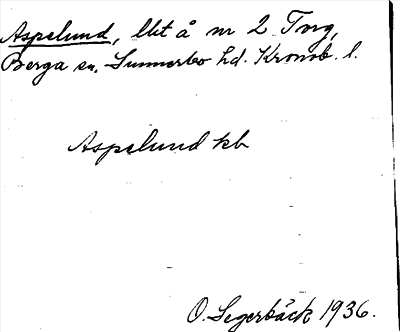 Aspelund, lht å nr 2 Torg,
Berga sn. Sunnerbo hd. Kronob. l.
Aspelund kb
O. Segerbäck 1936.